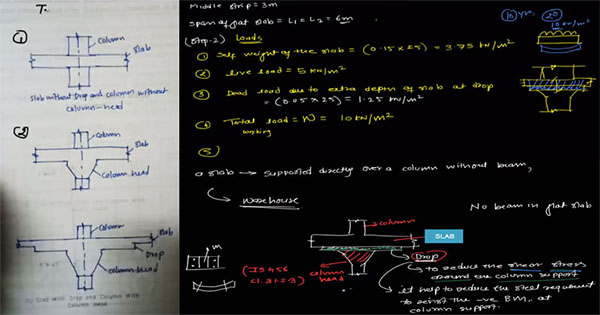 T.
①
column
slab
Slab without Drop and column without
column-head
②
column
slab
column head
column
slab
Drop
column head
(c) Slab with Drop and Column with
Column head
Middle strip = 3m
Span of flat slab = L1 = L2 = 6m
(Step:2) Loads
① Self weight of the slab = (0.15 x 25) = 3.75 kN/m²
② live load = 5 kN/m²
③ Dead load due to extra depth of slab at drop
= (0.05 x 25) = 1.25 kN/m²
④ Total load = W = 10 kN/m²
working
⑤
10 kN/m²
a slab → supported directly over a column without beam,
warehouse
No beam in flat slab
column
SLAB
Drop
m
(IS 456
column
head
to reduce the shear stress
around the column support
it help to reduce the steel requirement
to resist the -ve B.M. at
column support.